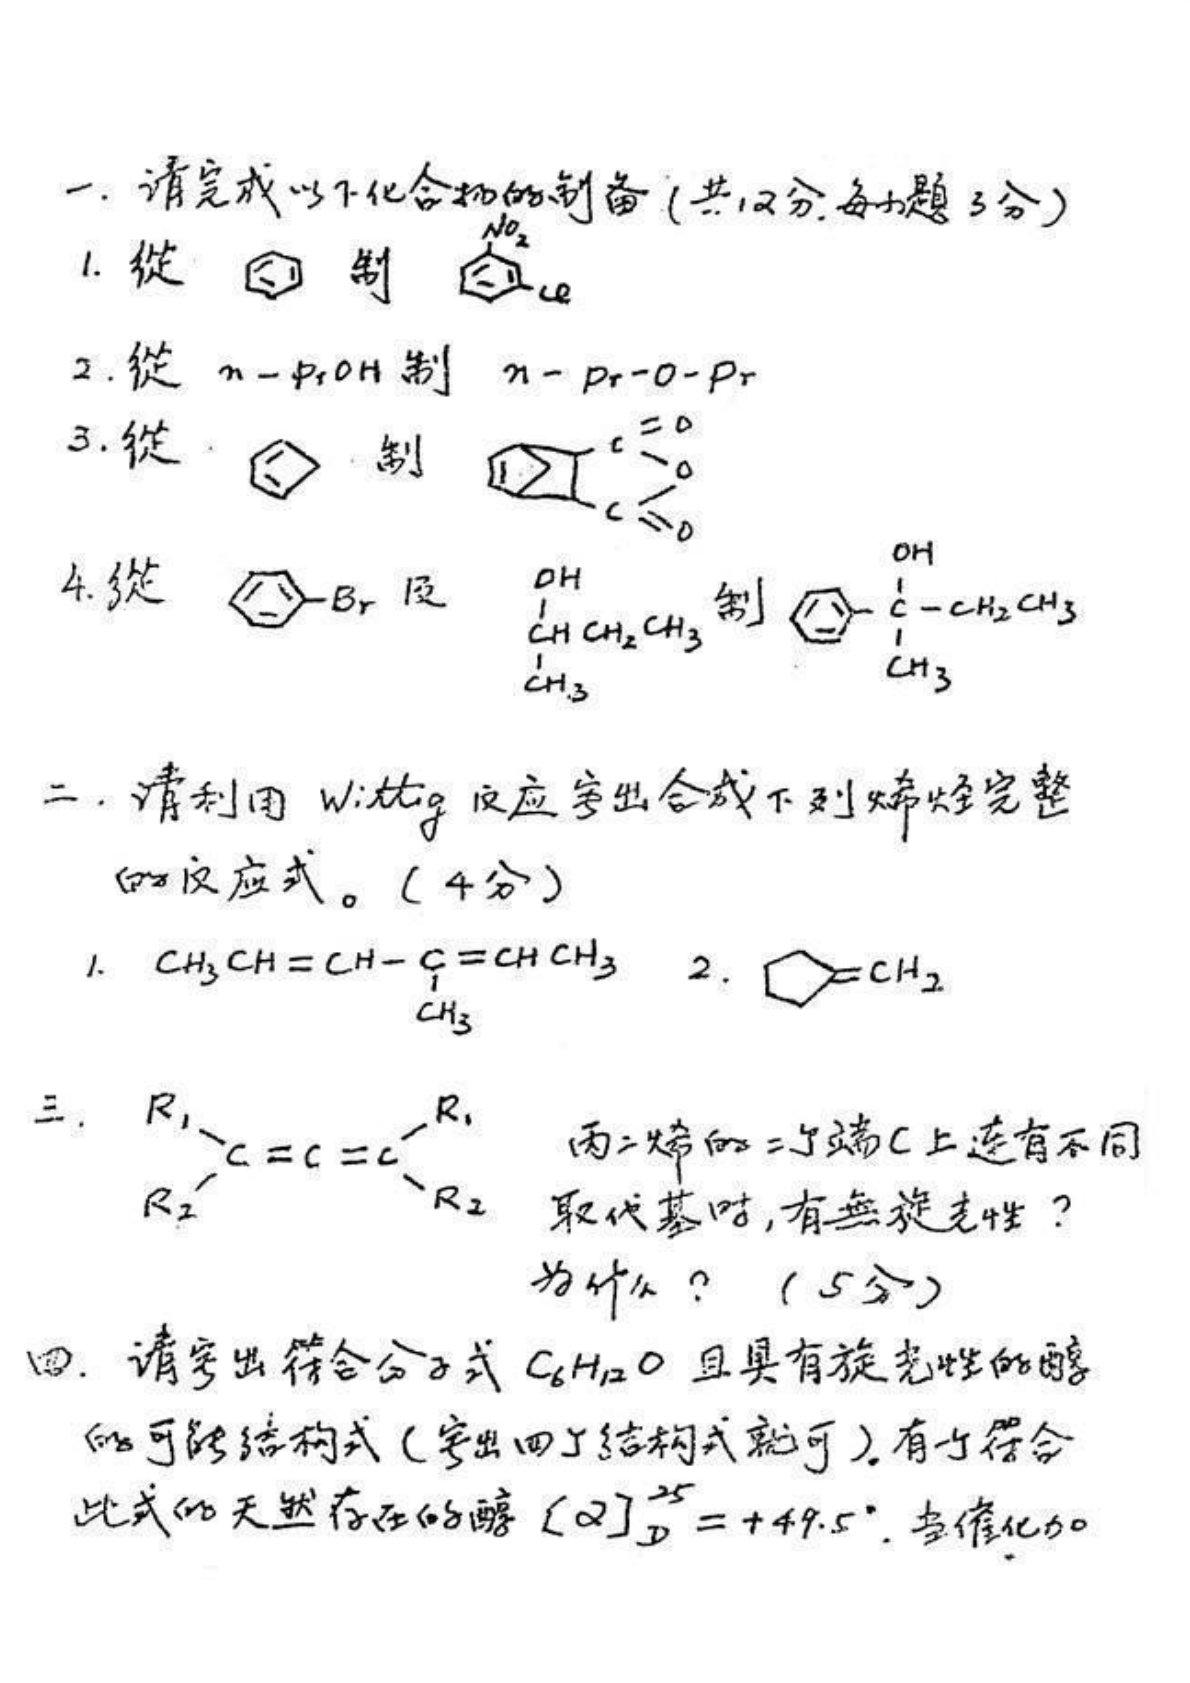 一. 请完成以下化合物的制备(共12分.每小题3分)
1. 從 制 NO2 Cl
2. 從 n-PrOH 制 n-Pr-O-Pr
3. 從 制 C=O O C=O
4. 從 Br 及 OH CHCH2CH3 CH3 制 OH C-CH2CH3 CH3
二. 请利用 Wittig 反应写出合成下列烯烃完整
的反应式。(4分)
1. CH3CH=CH-C=CHCH3 CH3 2. =CH2
三. R1 R2 C=C=C R1 R2 丙二烯的二个端C上连有不同
取代基时,有無旋光性?
为什么? (5分)
四. 请写出符合分子式 C6H12O 且具有旋光性的醇
的可能结构式(写出四个结构式就可)。有个符合
此式的天然存在的醇 [α]D25=+49.5°. 当催化加